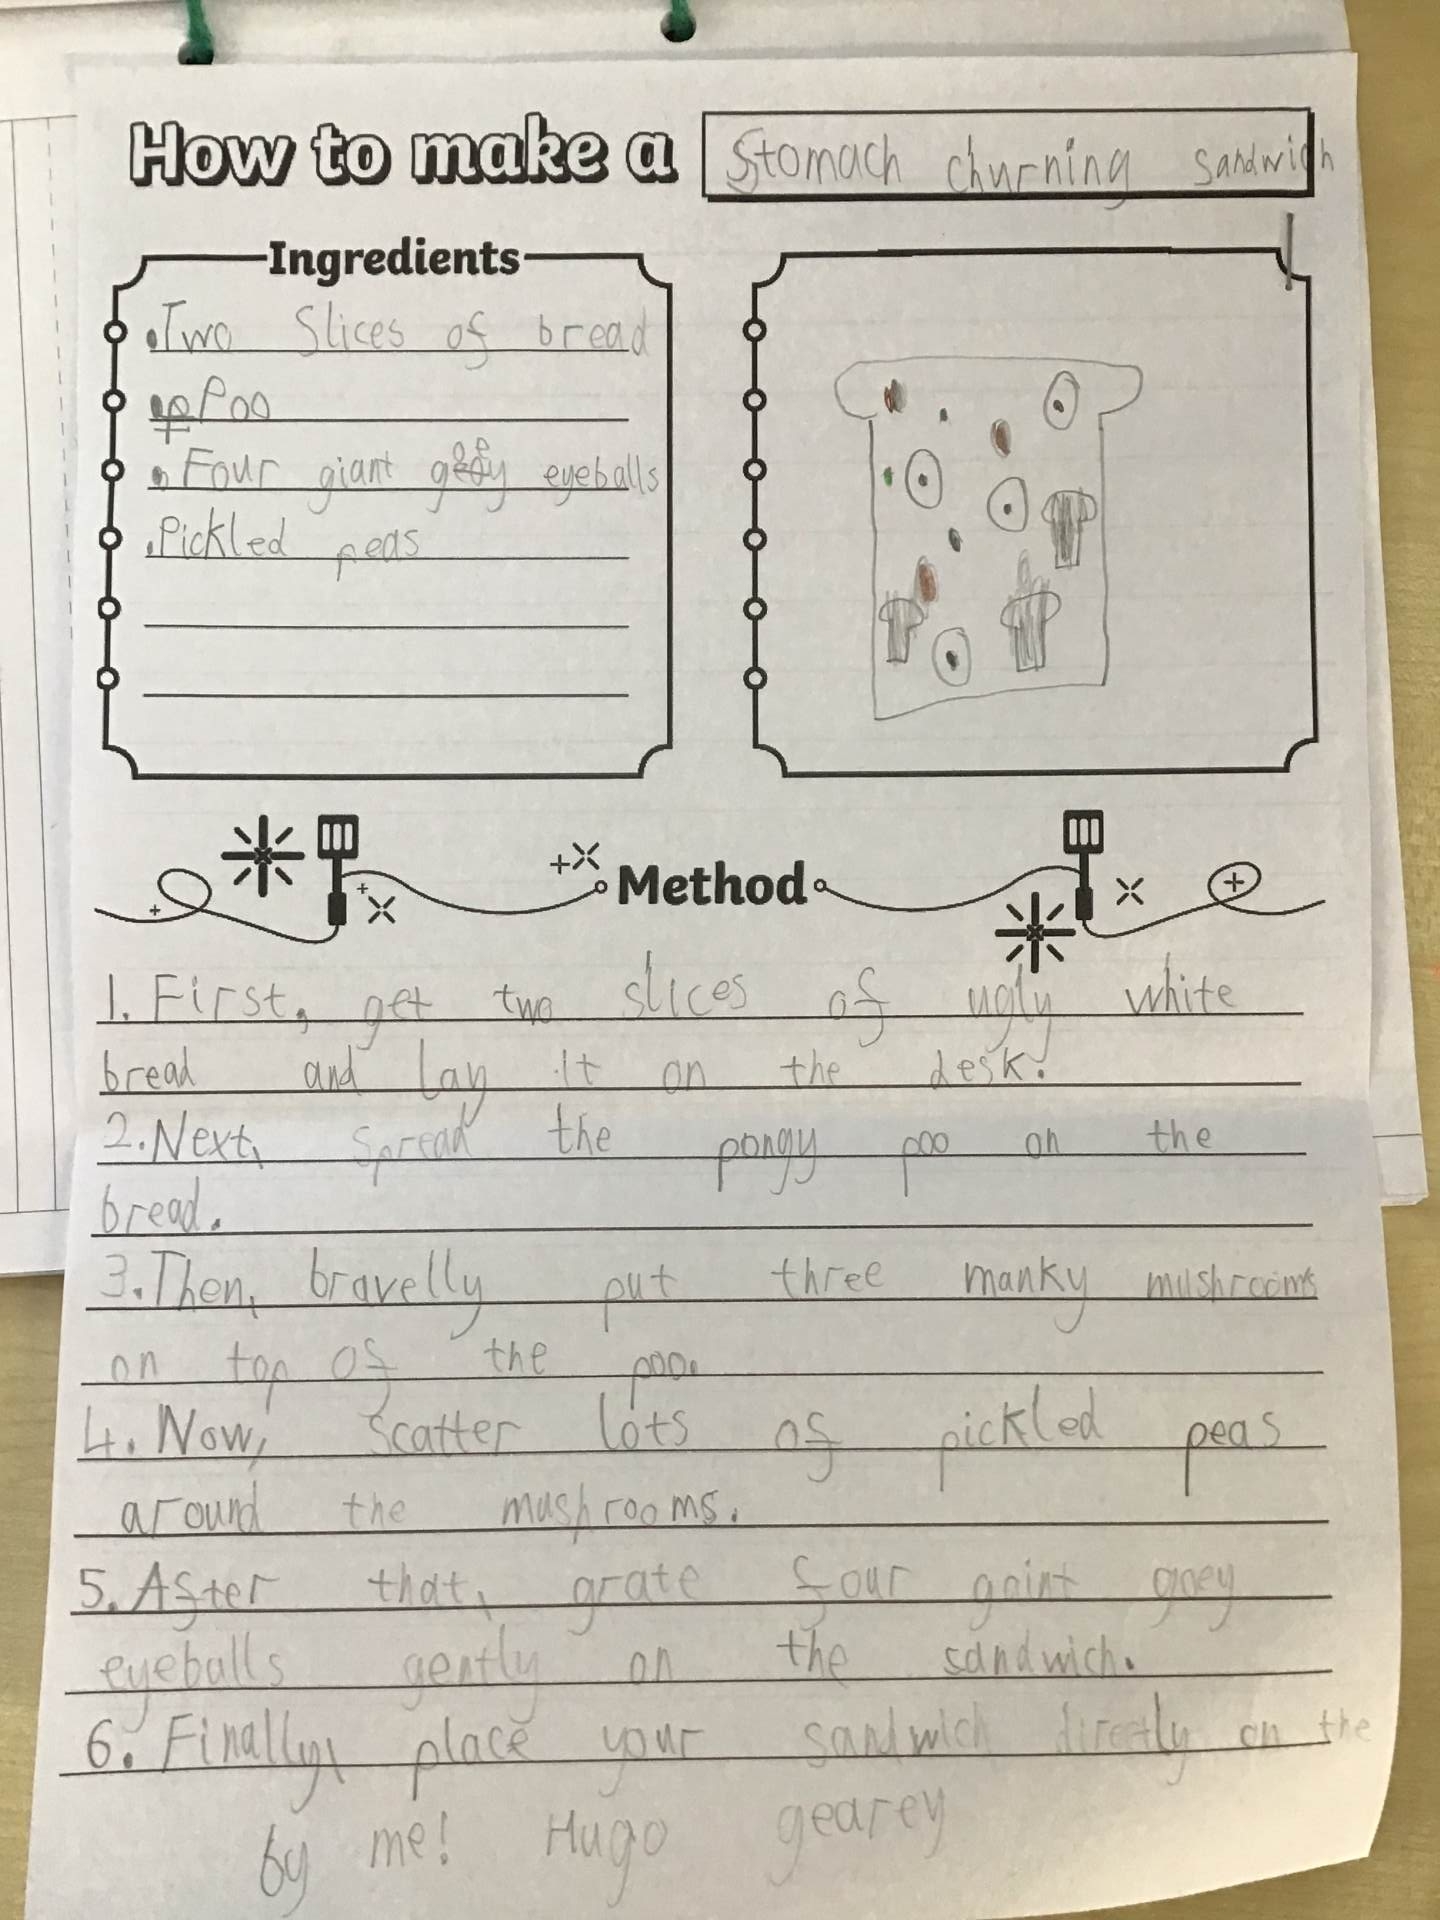 How to make a Stomach churning sandwich
Ingredients
• Two Slices of bread
• Poo
• Four giant gooey eyeballs
• Pickled peas
Method
1. First, get two slices of ugly white
bread and lay it on the desk.
2. Next, spread the pongy poo on the
bread.
3. Then, bravelly put three manky mushrooms
on top of the poo.
4. Now, scatter lots of pickled peas
around the mushrooms.
5. After that, grate four gaint goey
eyeballs gently on the sandwich.
6. Finally, place your sandwich directly on the
by me! Hugo gearey